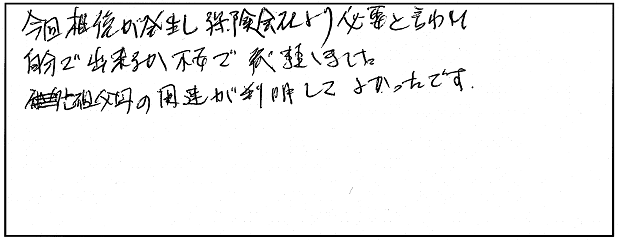 今回相続が発生し保険会社より必要と言われ
自分で出来るか不安で依頼しました
祖父母の関連が判明してよかったです.